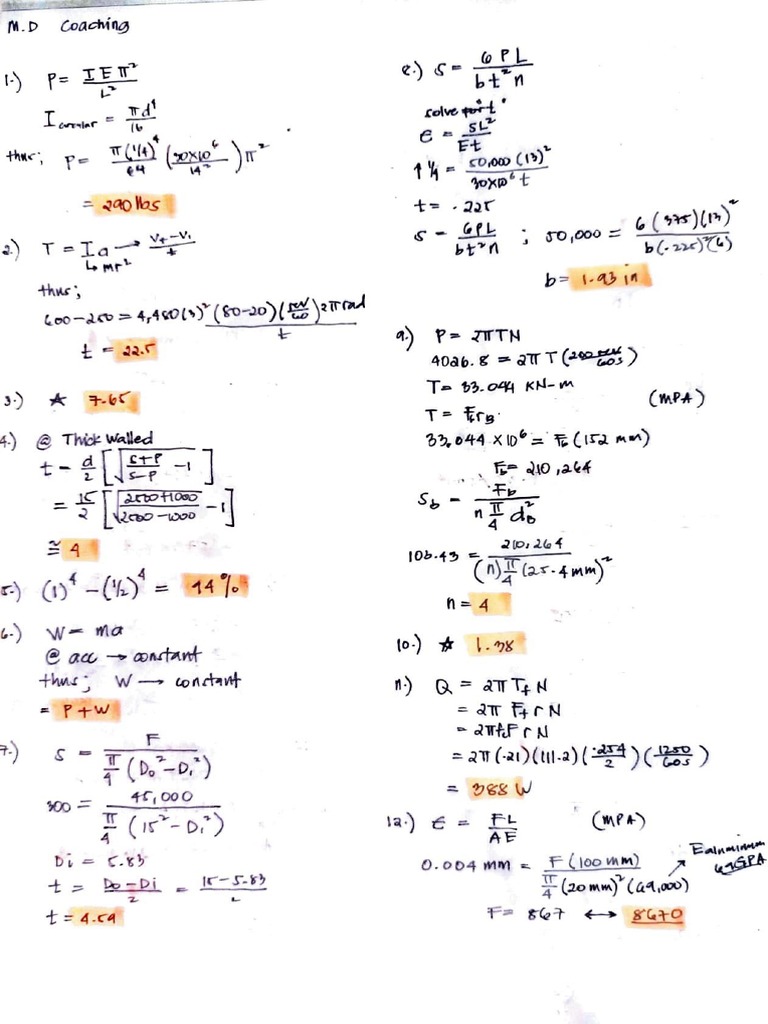 M.D Coaching
1.) P = IEπ² / L²
I circular = πd⁴ / 16
thus; P = π(1/4)⁴ / 64 (30x10⁶ / 14²) π²
= 290 lbs
2.) T = Ia → V₂-V₁ / t
↳ mr²
thus;
600-250 = 4,480(3)² (80-20)(rev/60) 2π rad / t
t = 22.5
3.) ☆ 7.65
4.) @ Thick walled
t = d/2 [√(S+P / S-P) - 1]
= 15/2 [√(2500+1000 / 2500-1000) - 1]
≅ 4
5.) (1)⁴ - (1/2)⁴ = 94%
6.) W = ma
@ acc → constant
thus; W → constant
= P+W
7.) S = F / π/4 (Do² - Di²)
300 = 45,000 / π/4 (15² - Di²)
Di = 5.83
t = Do-Di / 2 = 15-5.83 / 2
t = 4.59
8.) S = 6PL / bt²n
solve for t
e = SL² / Et
1 1/4 = 50,000(13)² / 30x10⁶ t
t = .225
S = 6PL / bt²n ; 50,000 = 6(375)(13)² / b(.225)²(6)
b = 1.93 in
9.) P = 2πTN
4026.8 = 2πT(200 rev / 60s)
T = 33.044 KN-m
(MPA)
T = Fb rB
33.044 x 10⁶ = Fb (152 mm)
Fb = 210,264
Sb = Fb / n π/4 dB²
103.43 = 210,264 / (n) π/4 (25.4 mm)²
n = 4
10.) ☆ 1.38
11.) Q = 2π Tf N
= 2π Ff r N
= 2πfF r N
= 2π(.21)(111.2)(.254/2)(1250/60s)
= 388 W
12.) ϵ = FL / AE (MPA)
0.004 mm = F(100 mm) / π/4 (20 mm)² (69,000)
Ealuminum 69GPA
F = 867 ↔ 8670